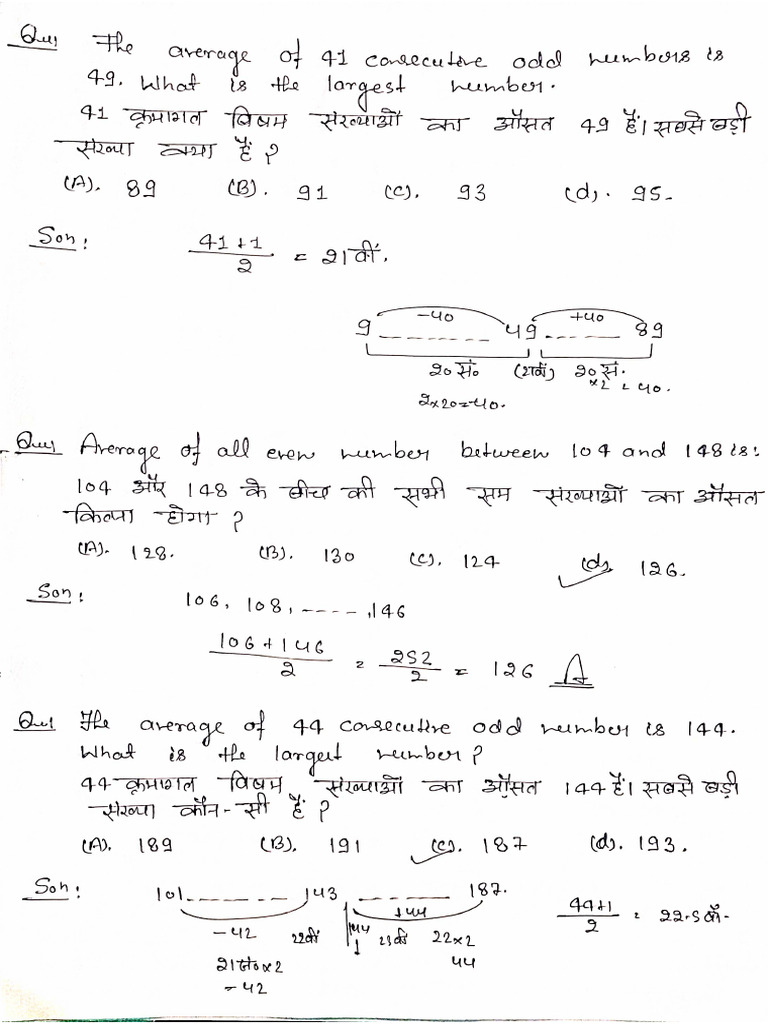 Que: The average of 41 consecutive odd numbers is
49. What is the largest number.
41 क्रमागत विषम संख्याओं का औसत 49 हैं। सबसे बड़ी
संख्या क्या हैं ?
(A). 89 (B). 91 (C). 93 (d). 95.
Son:
41+1/2 = 21वीं.
-40 +40
9 ------- 49 ------ 89
20 सं० (21वीं) 20 सं.
2×20=40. ×2 = 40.
Que: Average of all even number between 104 and 148 is:
104 और 148 के बीच की सभी सम संख्याओं का औसत
कितना होगा ?
(A). 128. (B). 130 (C). 124 (d). 126.
Son: 106, 108, ----, 146
106+146/2 = 252/2 = 126 A
Que: The average of 44 consecutive odd number is 144.
What is the largest number?
44 क्रमागत विषम संख्याओं का औसत 144 हैं। सबसे बड़ी
संख्या कौन-सी हैं ?
(A). 189 (B). 191 (C). 187 (d). 193.
Son: 101 ------ 143 ------ 187.
44+1/2 = 22.5 वाँ-
-42 22वीं 144 +44 23वीं 22×2
21सं०×2 44
= 42